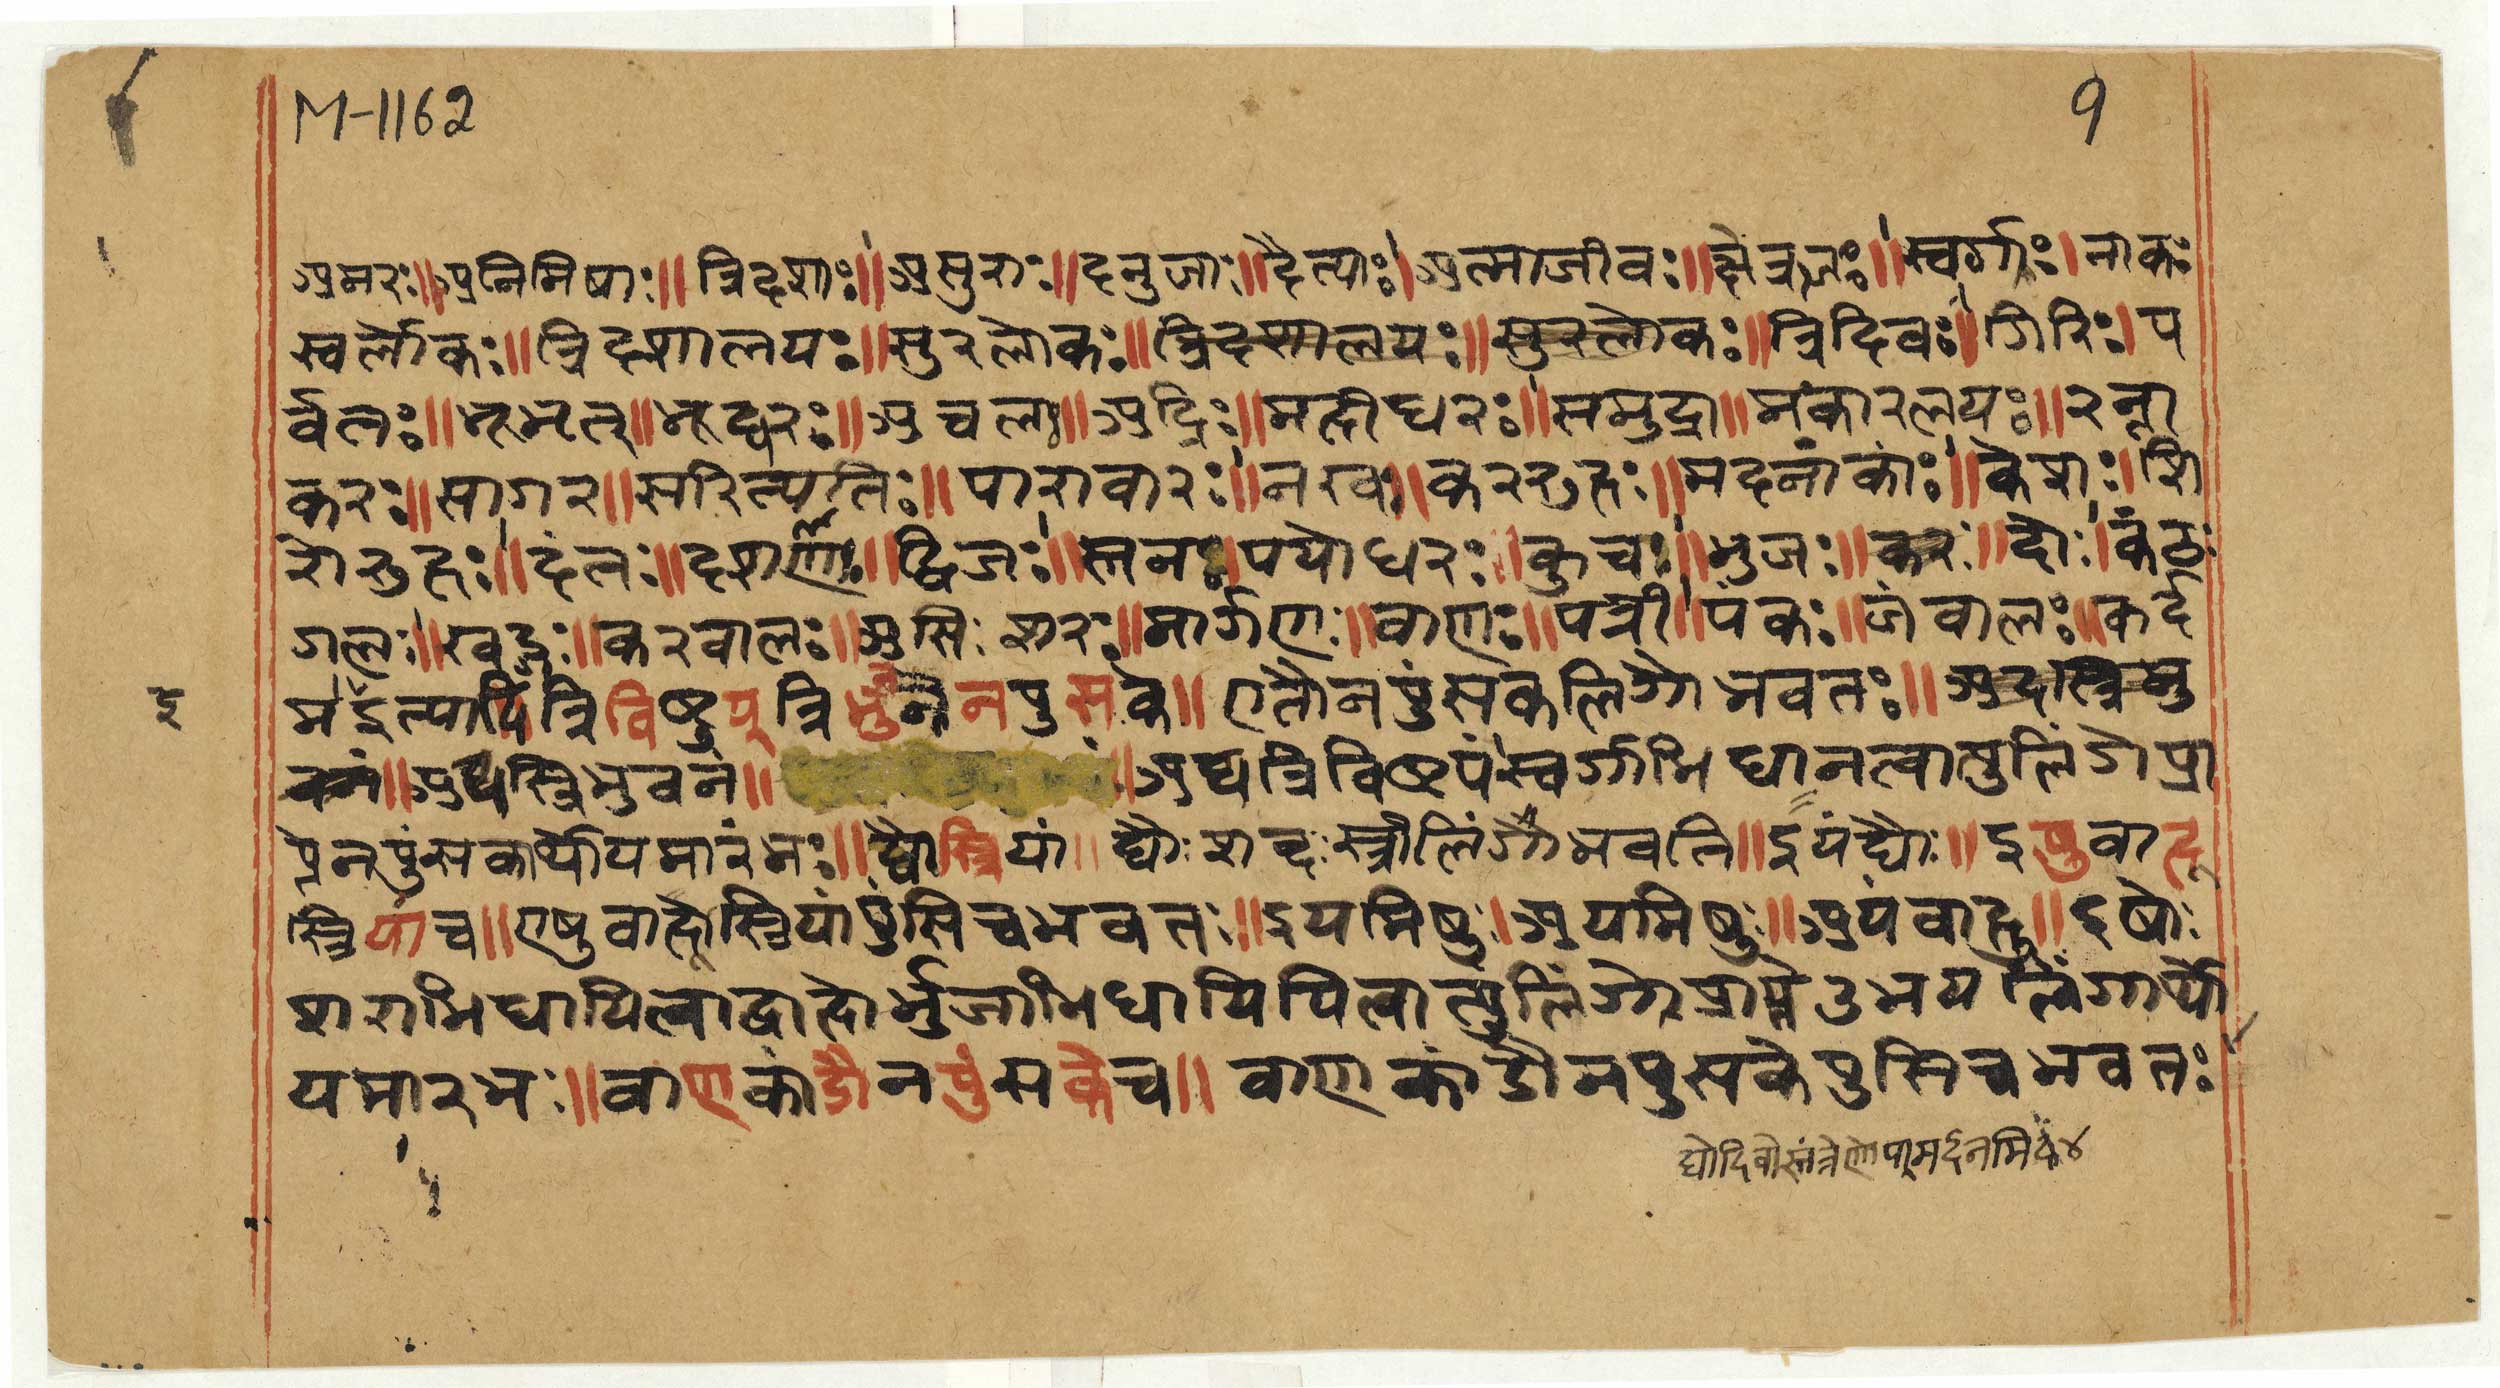 M-1162
9
अमरः॥अनिमिषाः॥त्रिदशाः॥असुराः॥दनुजाः॥दैत्याः।अत्माजीवः॥क्षेत्रज्ञः॥स्वर्गाः।नाकः
स्वर्लोकः॥त्रिदशालयः॥सुरलोकः॥त्रिदशालयः॥सुरलोकः॥त्रिदिवः॥गिरिः।प
र्वतः॥भूभृत्॥भूद्धरः॥अचलः॥अद्रिः॥महीधरः॥समुद्रा॥मकारलयः॥रत्ना
करः॥सागर॥सरित्पतिः॥पारावारः॥नखः॥कररुहः॥मदनांकाः॥केशः॥शि
रोरुहः॥दंतः॥दशणः॥द्विजः॥स्तन॥पयोधरः॥कुचः॥भुजः॥करः॥दोः।कंठः
गलः॥खड्गः॥करवालः॥असिः शरः॥मार्गणः॥वाणः॥पत्री॥पंकः॥जंवालः॥कर्द्द
मइत्यापि त्रिविष्टप्त्रिभुनेनपुसके॥एतौनपुंसकलिगोभवतः॥
इ
॥अद्यस्त्रिभुवनं॥ ॥अद्यत्रिविष्टपंस्वर्गाभिधानत्वात्पुलिंगेप्रा
प्तेनपुंसकार्योयमारंभः॥द्यौस्त्रियां॥द्यौः शब्दः स्त्रीलिंगोभवति॥इयंद्यौः॥इषुवाहू
स्त्रियांच॥एषुवाहूस्त्रियांपुंसिचभवतः॥इयमिषुः।अयमिषुः॥अयंवाहु॥इषोः
शराभिधायित्वाद्वाहोर्भुजाभिधायियित्वात्पुलिंगेप्राप्तेउभयलिंगार्थो
यमारभः॥वाणकांडौनपुंसकेच॥वाणकांडौनपुसकेपुसिचभवतः